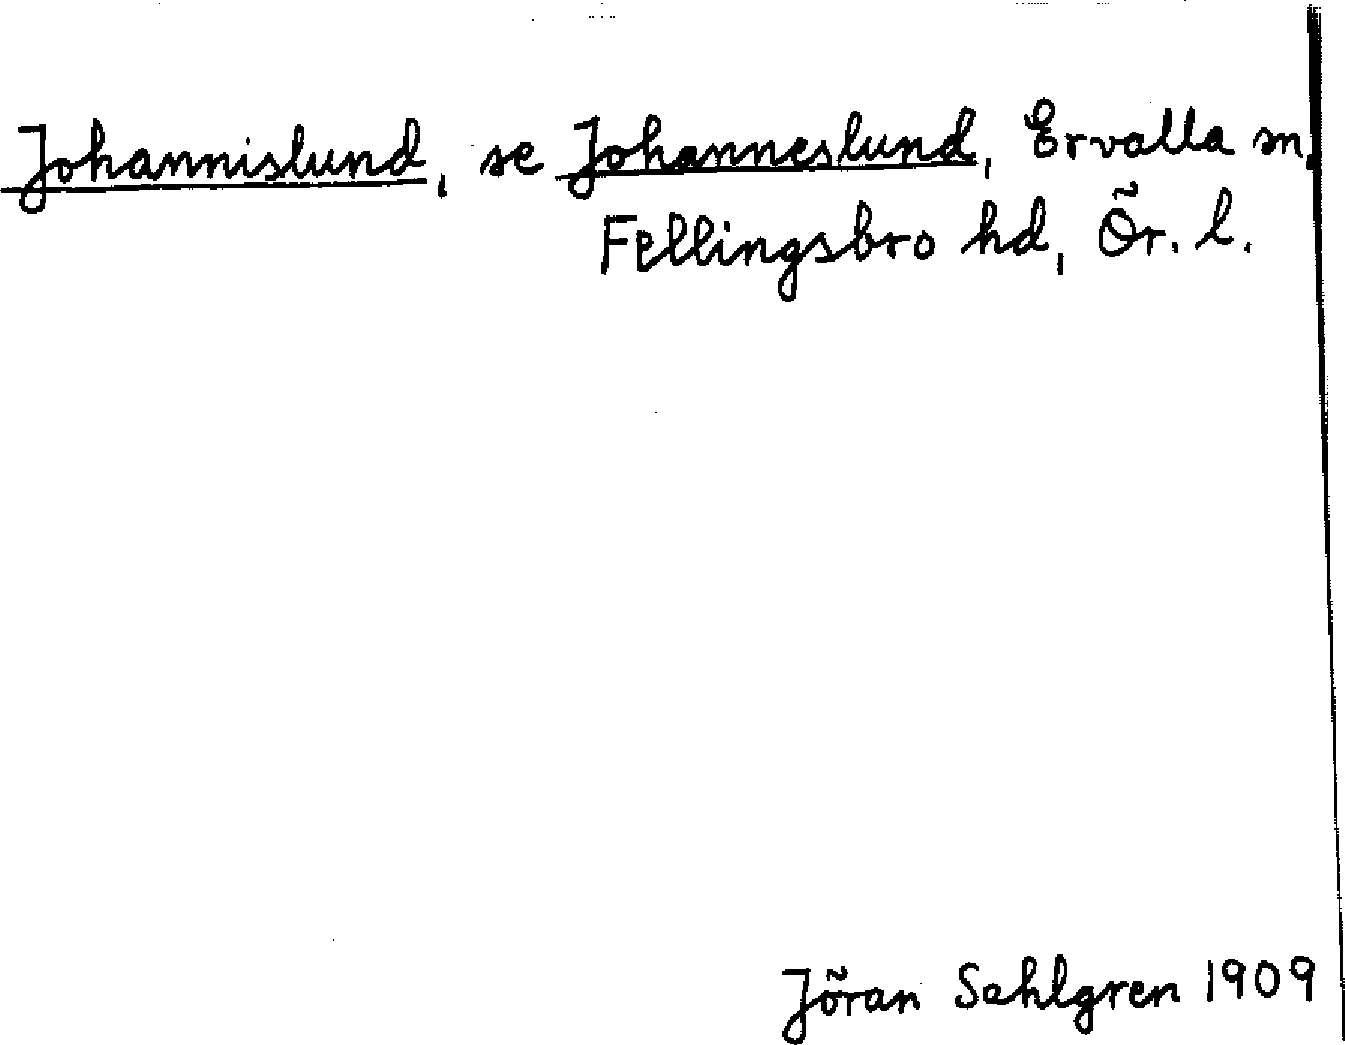 Johannislund, se Johanneslund, Ervalla sn,
Fellingsbro hd, Ör. l.
Jöran Sahlgren 1909